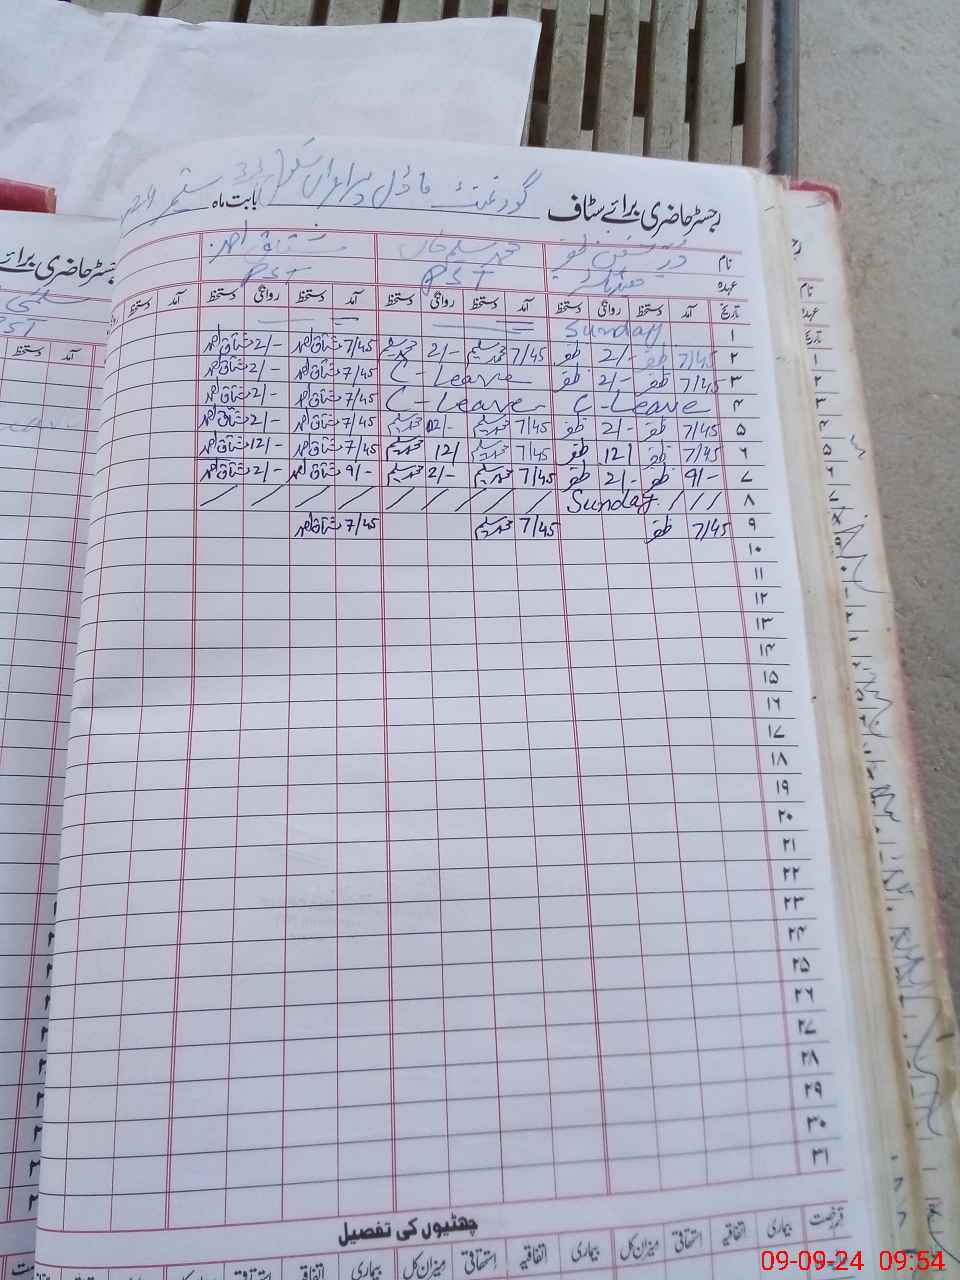 رجسٹر حاضری برائے سٹاف گورنمنٹ ماڈل پرائمری سکول بابت ماہ ستمبر
نام محمد سلیم خان مشتاق احمد
عہدہ PST PST
تاریخ آمد دستخط روانگی دستخط آمد دستخط روانگی دستخط آمد دستخط روانگی دستخط آمد دستخط
۱ Sunday
۲ 7/45 ظفر 2/- ظفر 7/45 محمد سلیم 2/- محمد سلیم 7/45 مشتاق احمد 2/- مشتاق احمد
۳ 7/45 ظفر 2/- ظفر C-Leave 7/45 مشتاق احمد 2/- مشتاق احمد
۴ C-Leave C-Leave 7/45 مشتاق احمد 2/- مشتاق احمد
۵ 7/45 ظفر 2/- ظفر 7/45 محمد سلیم 2/- محمد سلیم 7/45 مشتاق احمد 2/- مشتاق احمد
۶ 7/45 ظفر 12/ ظفر 7/45 محمد سلیم 12/ محمد سلیم 7/45 مشتاق احمد 12/- مشتاق احمد
۷ 9/- ظفر 2/- ظفر 7/45 محمد سلیم 2/- محمد سلیم 9/- مشتاق احمد 2/- مشتاق احمد
۸ / / / Sunday / / / / / / / /
۹ 7/45 ظفر 7/45 محمد سلیم 7/45 مشتاق احمد
۱۰
۱۱
۱۲
۱۳
۱۴
۱۵
۱۶
۱۷
۱۸
۱۹
۲۰
۲۱
۲۲
۲۳
۲۴
۲۵
۲۶
۲۷
۲۸
۲۹
۳۰
۳۱
چھٹیوں کی تفصیل
قسم رخصت بیماری اتفاقیہ استحقاقی میزان کل بیماری اتفاقیہ استحقاقی میزان کل بیماری اتفاقیہ استحقاقی
رجسٹر حاضری برائے
PST
آمد دستخط
09-09-24 09:54